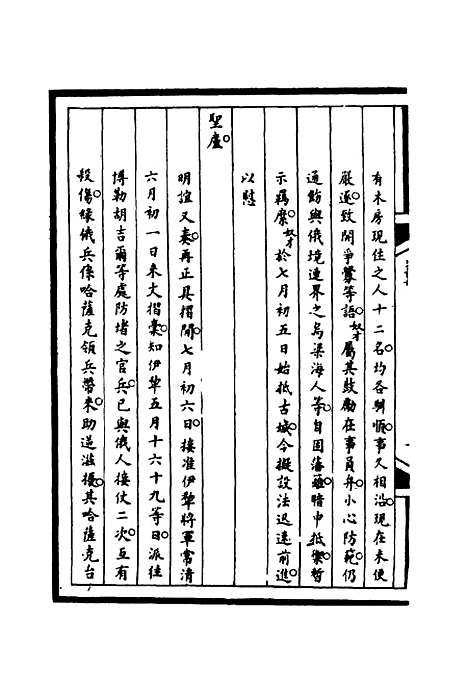 有木房現住之人十二名均各馴順事久相沿現在未便
厳逐致開爭釁等語奴才屬其鼓勵在事員弁小心防範仍
通飭與俄境連界之烏梁海人等自固藩籬暗中抵禦暫
示羈縻奴才於七月初五日始抵古城今擬設法迅速前進
以慰
聖廬
明誼又奏再正具摺間七月初六日接准伊犂將軍常清
六月初一日來文摺稾知伊犂五月十六十九等日派往
博勒胡吉爾等處防堵之官兵已與俄人接仗二次互有
殺傷緣俄兵係哈薩克領兵帶來助逆滋擾其哈薩克台